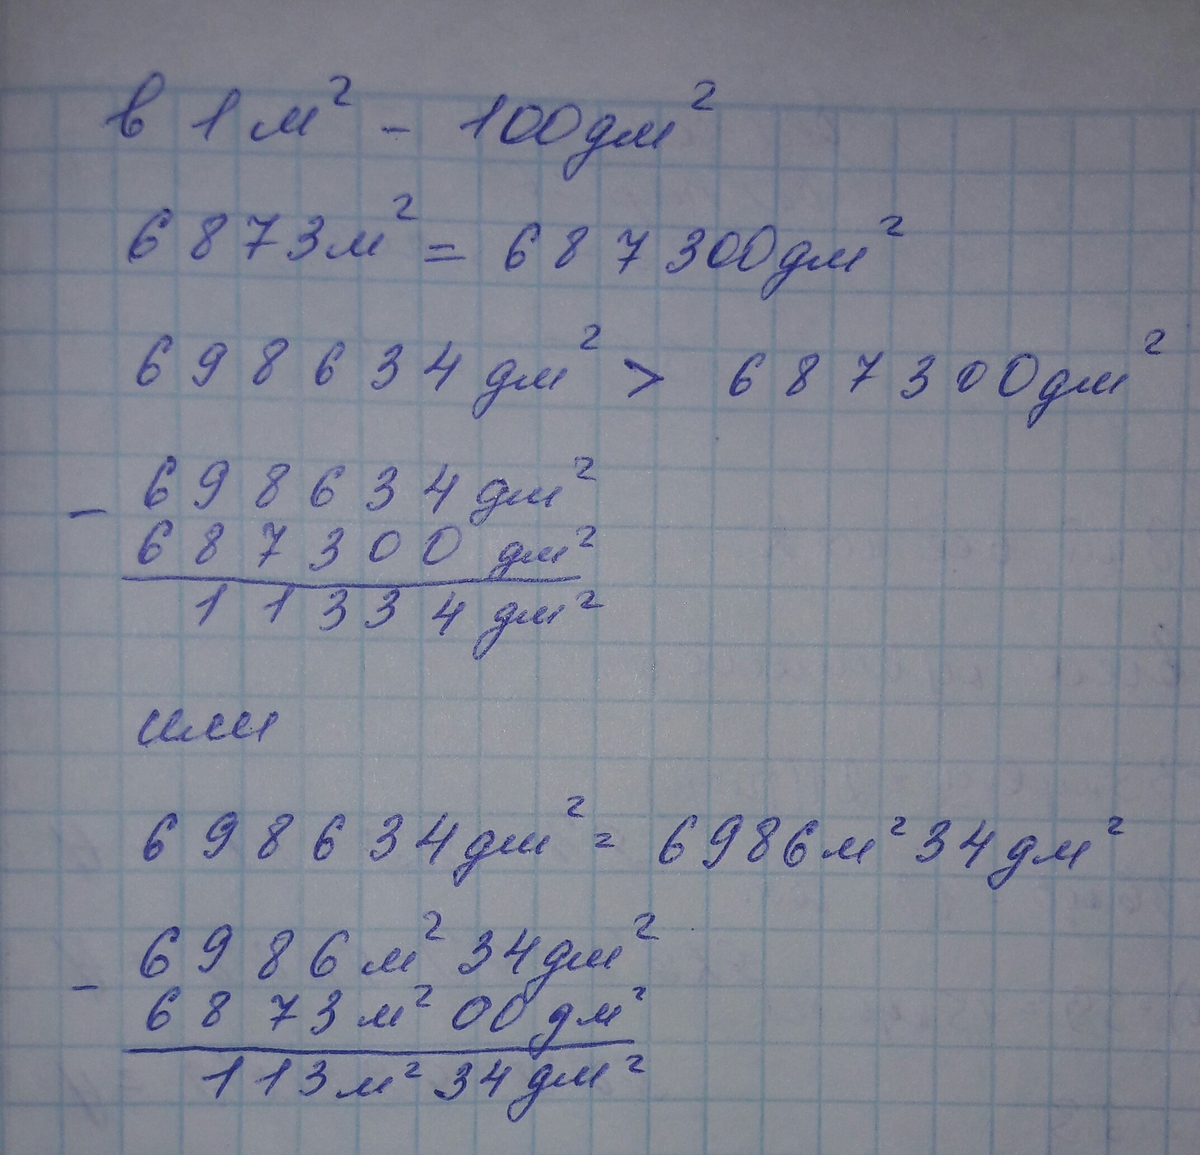 в 1 м² - 100 дм²
6873 м² = 687300 дм²
698634 дм² > 687300 дм²
- 698634 дм²
687300 дм²
11334 дм²
или
698634 дм² = 6986 м² 34 дм²
- 6986 м² 34 дм²
6873 м² 00 дм²
113 м² 34 дм²